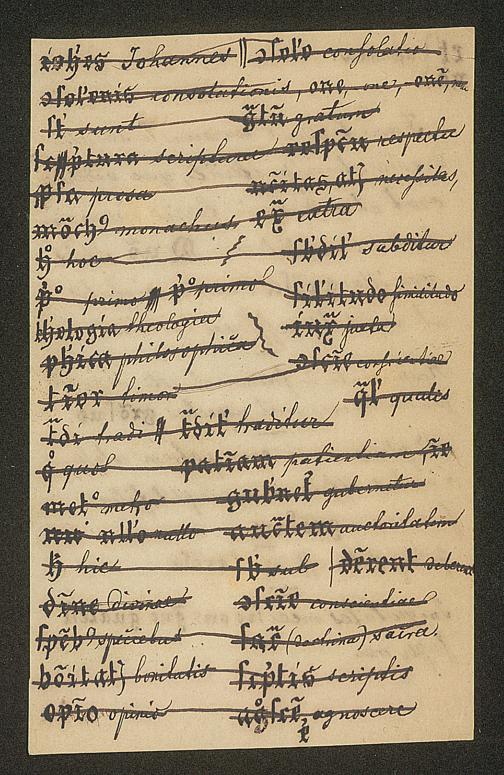 iohēs Johannes || ɔſolo consolatio
ɔſolonis consolationis, one, one, onē,
ſt sunt g̃tū gratum
ſcⁱptura scripturae respc̃u respectu
pſa prosa ncitas, at necessitas,
mõch⁹ monachus ex̃ extra
h̊ hoc ſbdit᷑ subditur
p̊° primo // p̊° primo ſilitudo similitudo
thologia theologia iux̃ juxta
phica philosophica ɔſciē conscientiae
tĩor timor q̃l' quales
t̃di tradi // t̃dit᷑ traditur
q̊ quod patīam patientiam
mot° motu gubnet᷑ gubernetur
nllo nullo auc̃tem auctoritatem
h̄ hic ſb sub | dēr̄ent deberent
dīne divinae ɔſciē conscientiae
ſpēb⁹ speciebus sac̃ (doctrina) sacra
bõitat bonitatis ſcptis scriptis
opīo opinio ag̊ſcē agnoscere